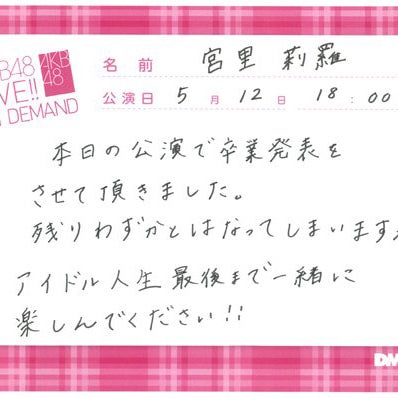 B48
VE!!
DEMAND
AKB
48
名前 宮里 莉羅
公演日 5月12日 18:00
本日の公演で卒業発表を
させて頂きました。
残りわずかとはなってしまいますが
アイドル人生最後まで一緒に
楽しんでください!!
DM